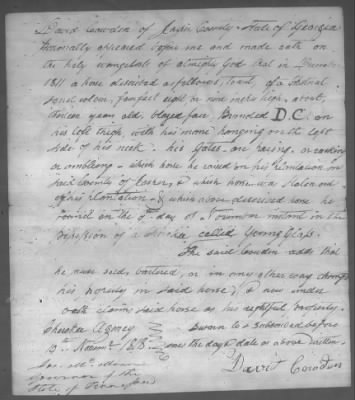 David Cowden of Jasper County & State of Georgia
Personally appeared before me and made oath on
the holy evangelists of almighty God that in
1811 a horse discribed as follows, towit, of a
sorrel colour, four feet eight or nine inches high, about
years old, blazed face, Branded D.C on
his left thigh, with his mane hanging on the left
side of his neck. his gates are or racking
or ambling - which horse he raised on his plantation in
said County of & which horse was stolen out
of his plantation - & which above discribed horse he
found on the day of instant in the
possession of a Cherokee called Young Glass.
The said Cowden adds that
he never sold, bartered, or in any other way changed
his property in said horse, & now under
oath claims said horse as his rightful property.
Cherokee Agency Sworn to & subscribed before
1818 me the day & date as above written.
David Cowden
Governor of the
State of Tennessee